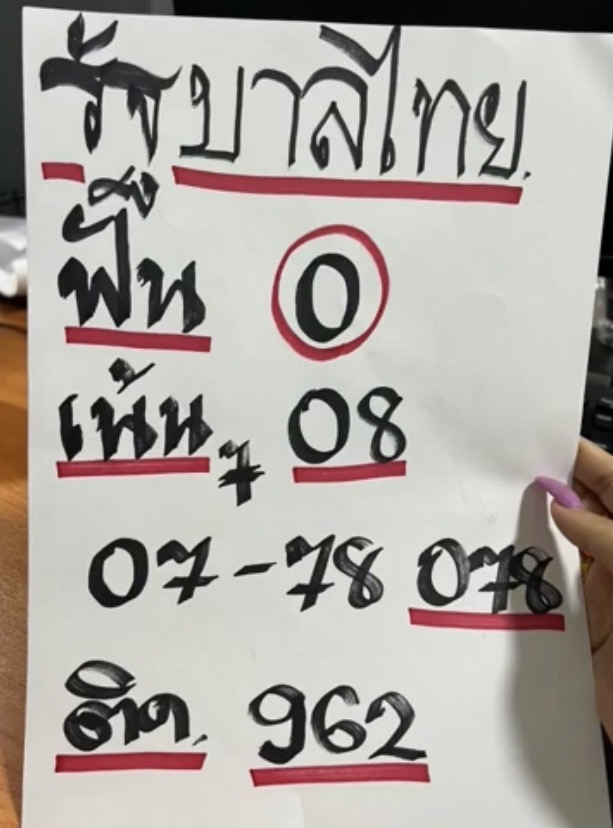 รัฐบาลไทย.
ฟัน 0
เน้น 7 08
07-78 078
ติด. 962